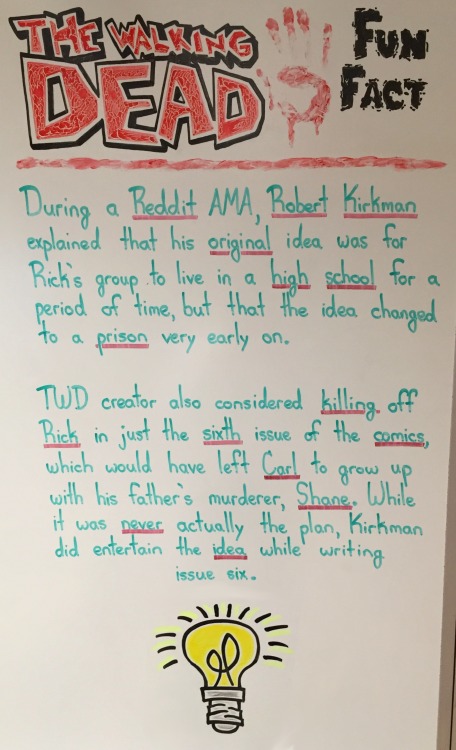 THE WALKING
DEAD
FUN
FACT
During a Reddit AMA, Robert Kirkman
explained that his original idea was for
Rick's group to live in a high school for a
period of time, but that the idea changed
to a prison very early on.
TWD creator also considered killing off
Rick in just the sixth issue of the comics,
which would have left Carl to grow up
with his father's murderer, Shane. While
it was never actually the plan, Kirkman
did entertain the idea while writing
issue six.